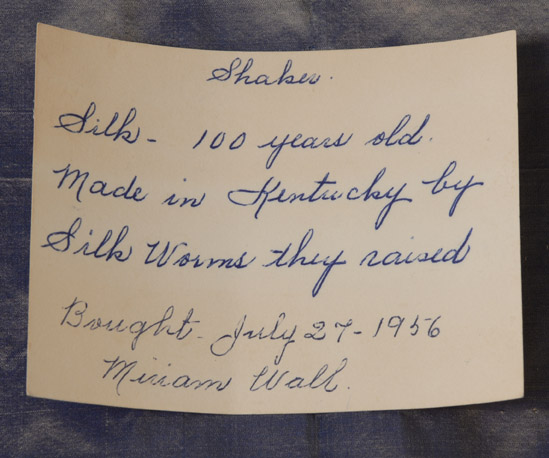 Shaker.
Silk - 100 years old.
Made in Kentucky by
Silk Worms they raised
Bought - July 27 - 1956
Miriam Wall.